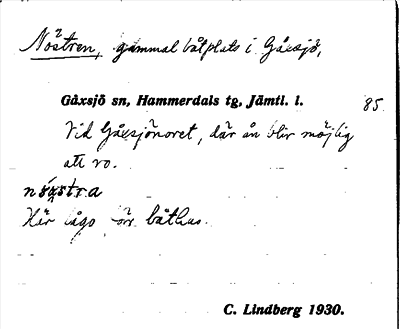 Nöstren, gammal båtplats i Gåxsjö,
Gåxsjö sn, Hammerdals tg, Jämtl. l.
85.
Vid Gåxsjönoret, där ån blir möjlig
att ro.
Här lågo förr båthus.
C. Lindberg 1930.